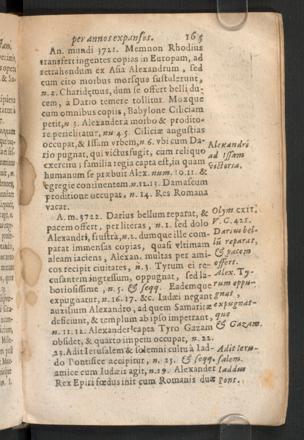 per annos expansos. 165
An. mundi 3721. Memnon Rhodius
transfert ingentes copias in Europam, ad
retrahendum ex Asia Alexandrum, sed
eum cito morbus morsque sustulerunt,
n. 2. Charidemus, dum se offert belli du-
cem, a Dario temere tollitur. Moxque
cum omnibus copiis, Babylone Ciliciam
petit, n 3. Alexander a morbo & prodito-
re periclitatur, nu 4. 5. Ciliciæ angustias
occupat, & Issam vrbem, n 6. vbi cum Da-
rio pugnat, qui victus fugit, cum reliquo
exercitu ; familia regia capta est, in quam
humanum se præbuit Alex. num. 10. 11. &
egregie continentem. n. 12. 13. Damascum
proditione occupat, n. 14. Res Romana
vacat.
Alexandri
ad Issam
victoria.
A. m. 3722. Darius bellum reparat, &
pacem offert, per literas, n. 1. sed dolo
Alexandri, frustrà, n. 2. dumque ille com-
parat immensas copias, quasi vltimam
aleam iaciens, Alexan. multas per ami-
cos recipit ciuitates, n. 3. Tyrum ei re-
cusantem ingressum, oppugnat, sed la-
boriosissime, n. 5. & seqq. Eademque
expugnatur, n. 16. 17. &c. Iudæi negant
auxilium Alexandro, ad quem Samaritæ
deficiunt, & templum ab ipso impetrant,
n. 11. 12. Alexander capta Tyro Gazam
obsidet, & quarto impetu occupat, n. 22.
23. Adit Ierusalem & solemni cultu à Iad-
do Pontifice accipitur, n. 25. & seqq.
amice cum Iudæis agit, n. 29. Alexander
Rex Epiri fœdus init cum Romanis dux
Olym. CXII.
V. C. 421.
Darius bel-
lũ reparat,
& pacem
offert.
Alex. Ty-
rum oppu-
gnat,
expugnat-
que
& Gazam.
Adit Ieru-
salem.
Iaddus
Pont.